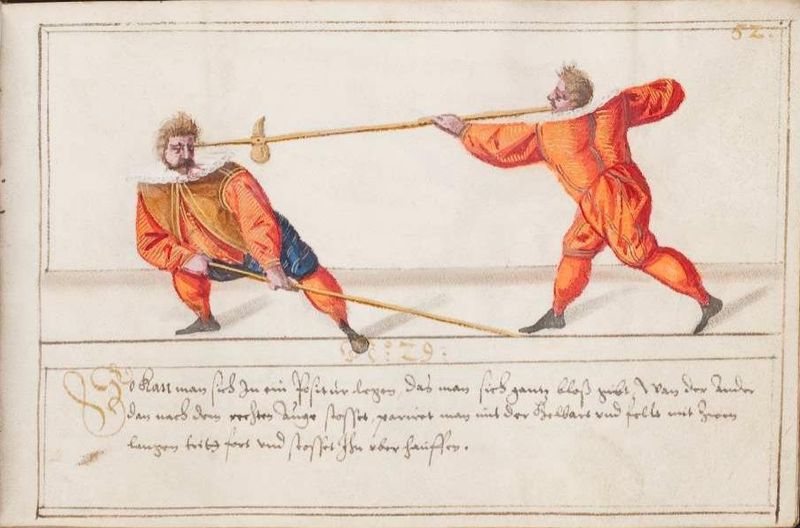 52.
No: 29:
So kan man sich In ein Positur legen, das man sich gantz bloß gibt, Wan der Ander
dan nach dem rechten Auge stosset, pariret man mit der Helbart vnd felt mit Zwen
langen tritt fort vnd stosset Ihn vber hauffen.